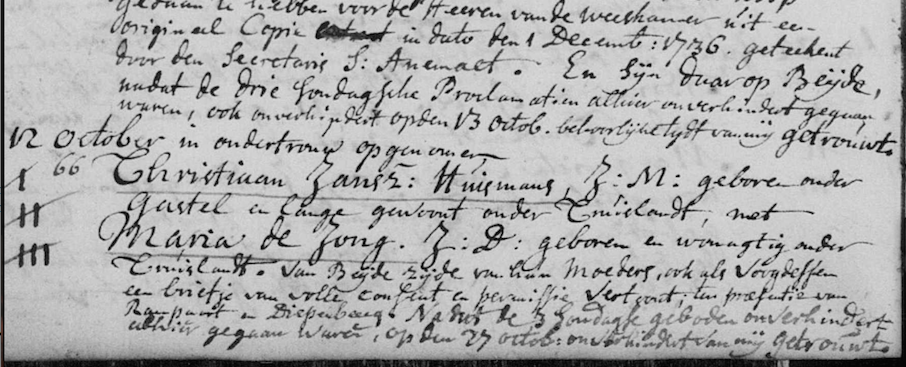 gedaan te hebben voor de Heeren vande weeskamer uit een
origineel Copie in dato den 1 Decemb: 1736. geteekent
door den Secretaris S: Anemaet. En Sijn daar op Beijde,
nadat de drie Sondagsche Proclamatien alhier onverhindert gegaan
waren, ook onverhindert op den 13 octob. behoorlijke tydt van mij getrouwt.
12 October in ondertrouw opgenomen
66 Christiaan Jansz: Huismans, J: M: geboren onder
I
Gastel en lange gewoont onder Cruislandt, met
II
Maria de Jong. J: D: geboren en woonagtig onder
III
Cruislandt. Van Beijde zijde van hun Moeders, ook als Voogdessen
een briefje van volle consent en permissie vertoont, ten præsentie van
en Diepenbrug. Nadat de 3 Sondagse geboden onverhindert
alhier gegaan waren, op den 27 octob: onverhindert van mij getrouwt.